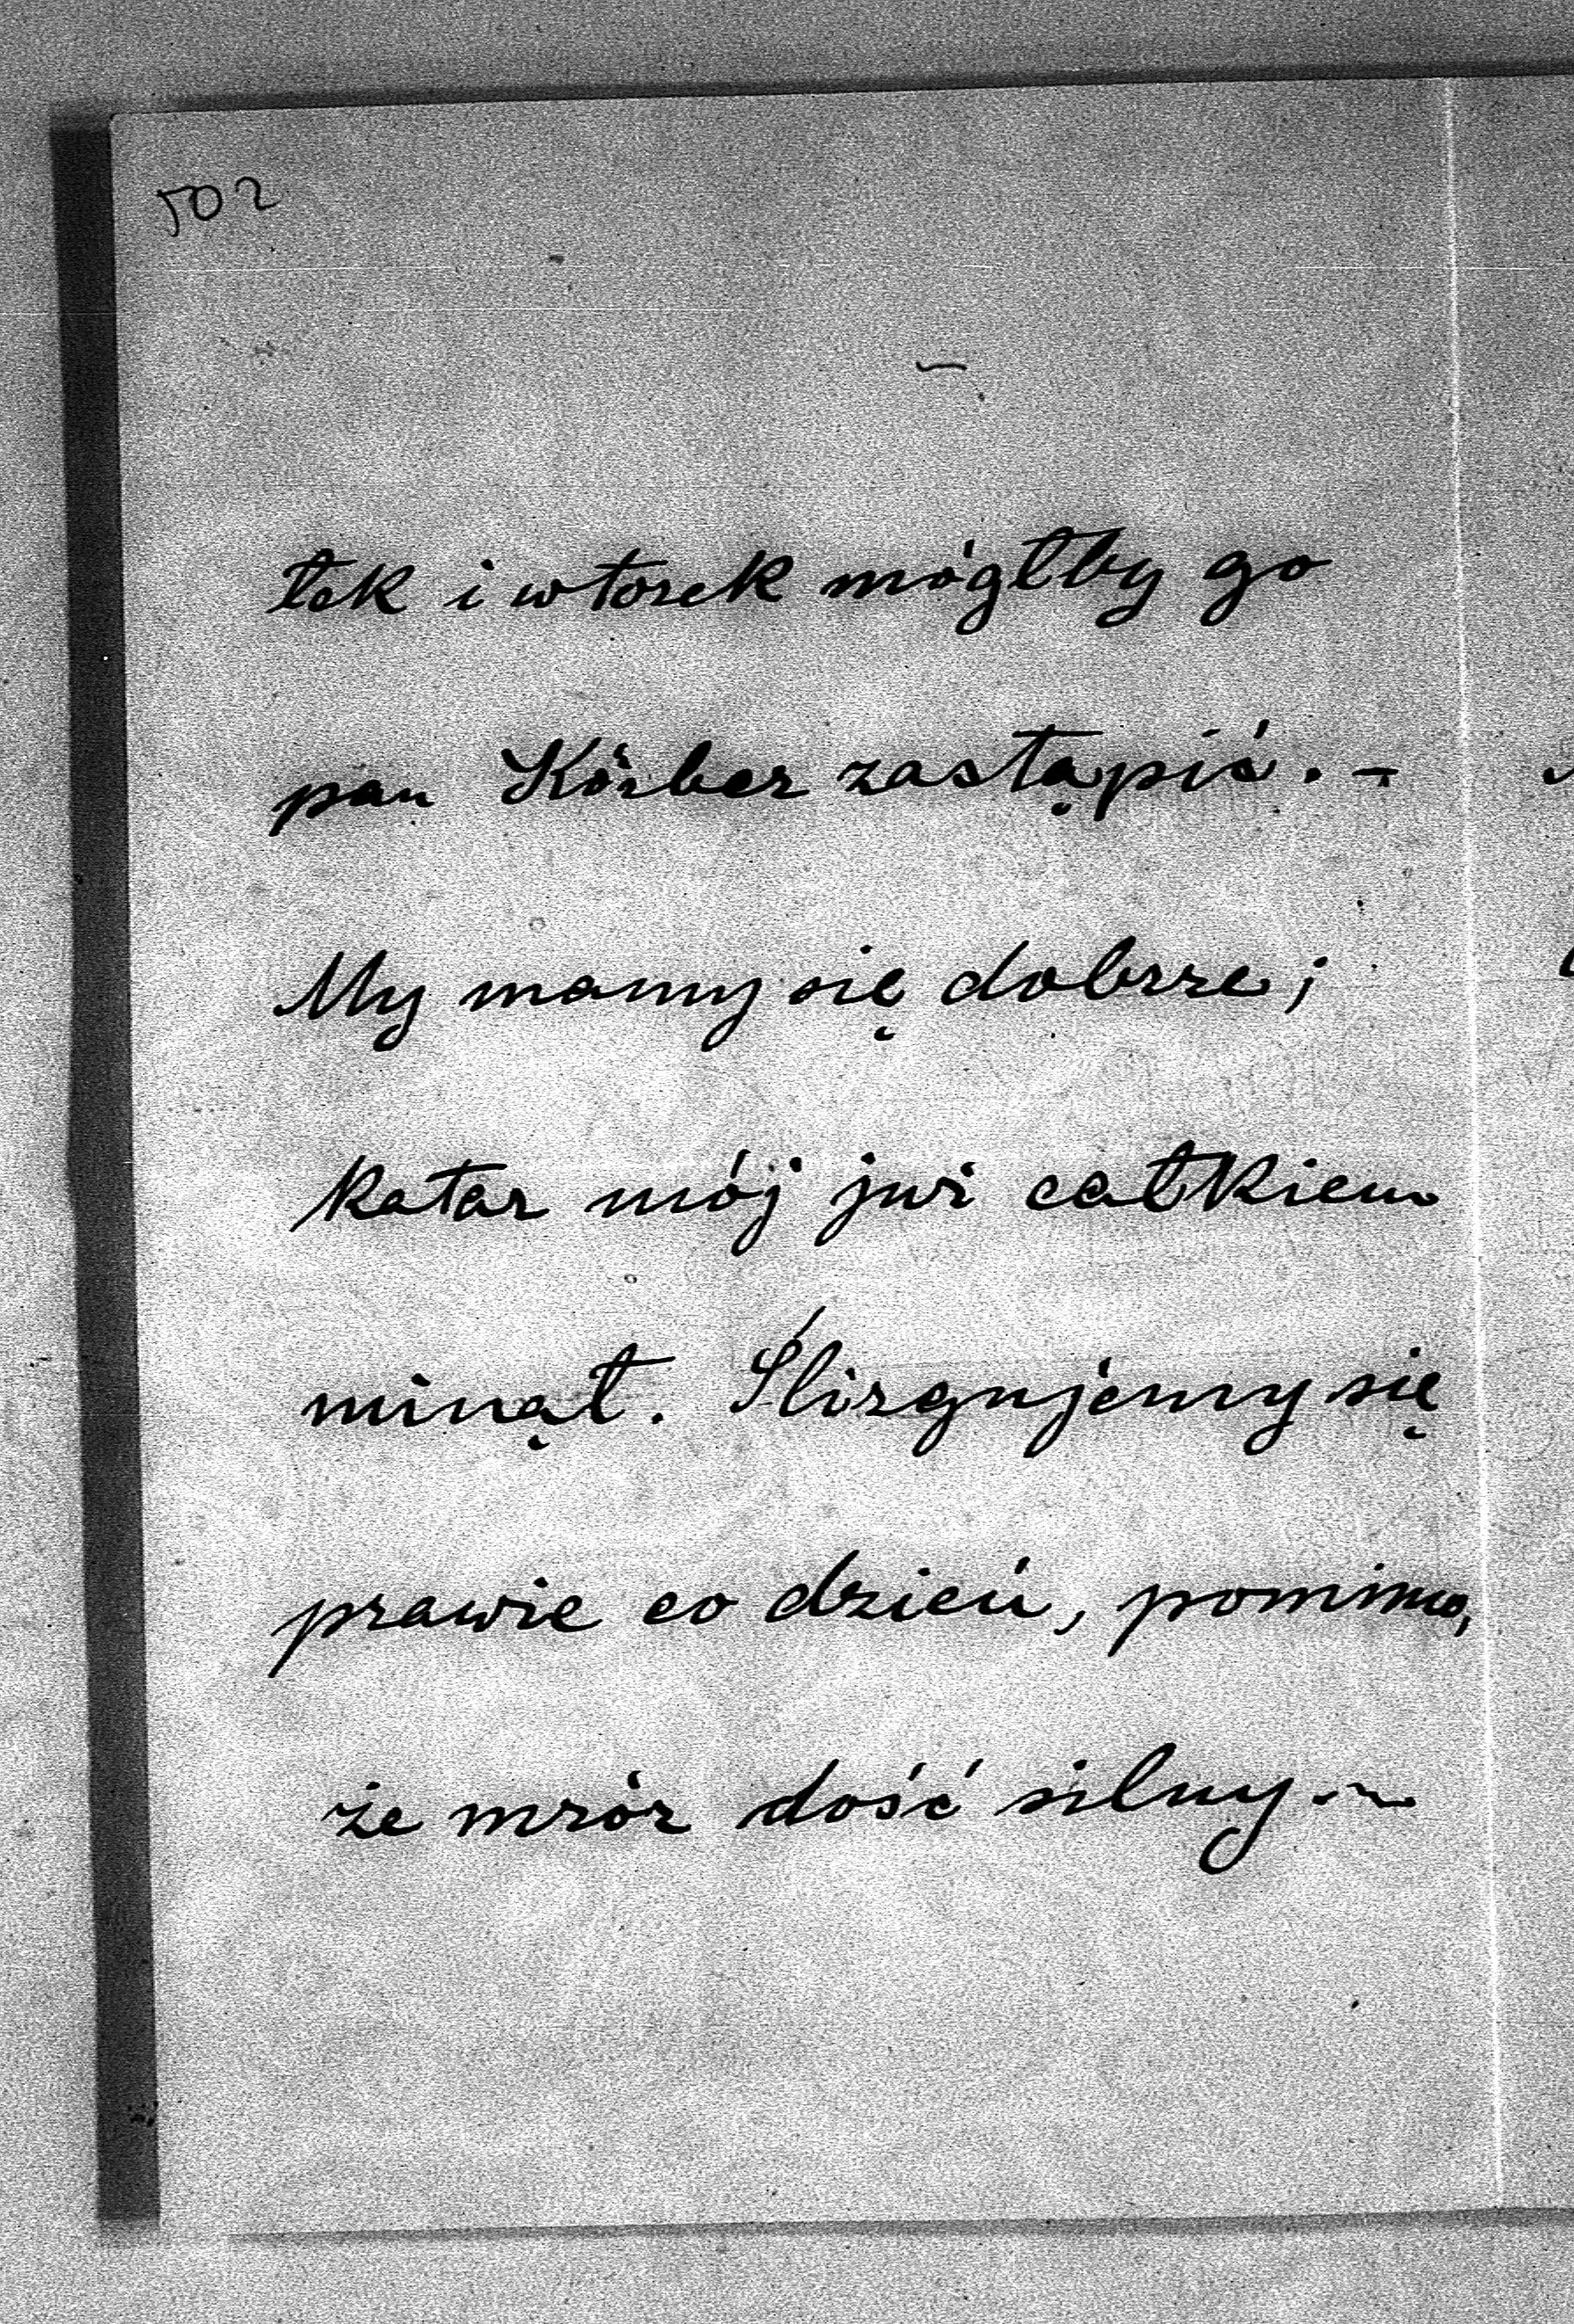 502
tek i wtorek mógłby go
pan Körber zastąpić. –
My mamy się dobrze;
katar mój już całkiem
minął. Ślizgujemy się
prawie co dzień, pomimo,
że mróz dość silny. ~